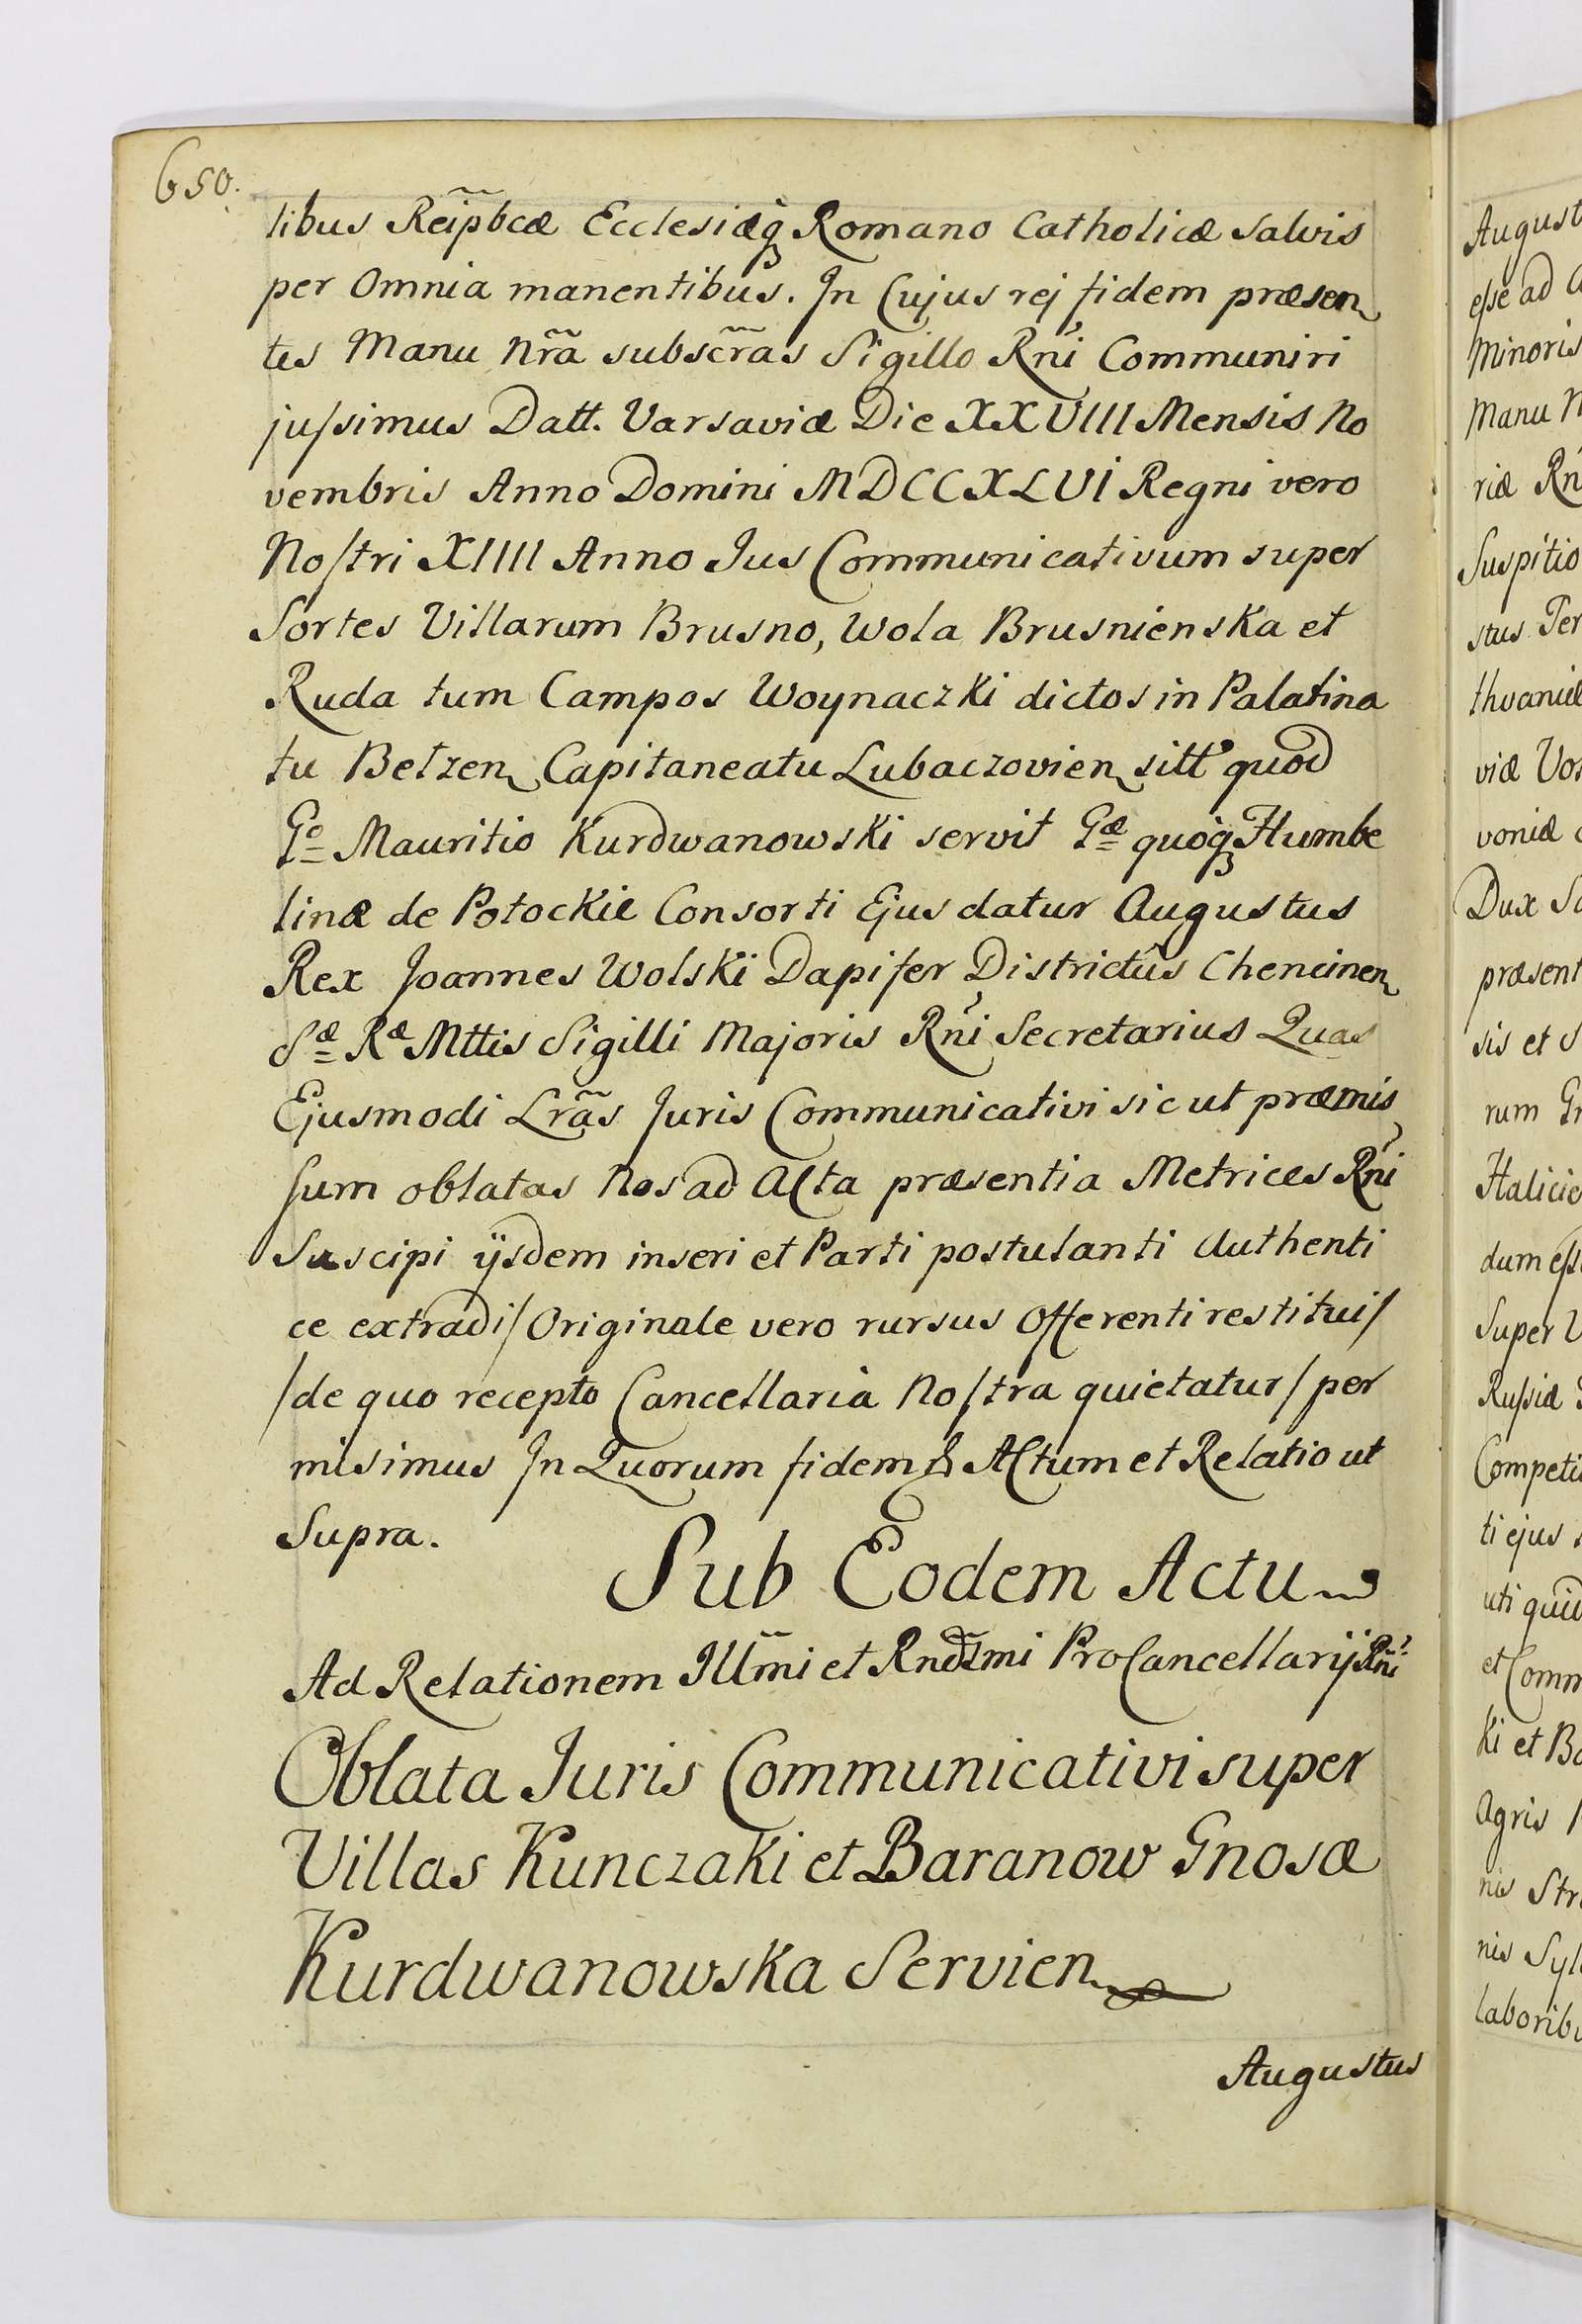 650.
libus Reipbcæ Ecclesiæq̃ Romano Catholicæ salvis
per Omnia manentibus. In Cujus rej fidem præsen
tes Manu nr̃a subscr̃as Sigillo Rñi Communiri
jussimus Datt. Varsaviæ Die XXVIII Mensis No
vembris Anno Domini MDCCXLVI Regni vero
Nostri XIIII Anno Jus Communicativum super
Sortes Villarum Brusno, Wola Brusnienska et
Ruda tum Campos Woynaczki dictos in Palatina
tu Belzen Capitaneatu Lubaczovien sitt quod
Go Mauritio Kurdwanowski servit Gæ quoq̃ Humbe
linæ de Potockie Consorti Ejus datur Augustus
Rex Joannes Wolski Dapifer Districtûs Chencinen
Sæ Ræ Mttis Sigilli Majoris Rñi Secretarius Quas
Ejusmodi Lr̃as Juris Communicativi sic ut præmis
sum oblatas Nos ad Acta præsentia Metrices Rñi
Suscipi ijsdem inseri et Parti postulanti Authenti
ce extradi/Originale vero rursus Offerenti restitui/
/de quo recepto Cancellaria Nostra quietatur/per
misimus In Quorum fidem Actum et Relatio ut
Supra.
Sub Eodem Actu
Ad Relationem Illm̃i et Rnds̃mi ProCancellarij Rñi
Oblata Juris Communicativi super
Villas Kunczaki et Baranow Gnosæ
Kurdwanowska Servien
Augustus
August
esse ad
Minoris
Manu
riæ Rn
Suspitio
stus Ter
thvaniæ
viæ Vos
voniæ
Dux Sa
præsent
sis et S
rum Gr
Halicie
dum ess
Super V
Russiæ
Competi
ti ejus
uti quid
et Comm
ki et Ba
Agris
nis Str
nis Syl
laboribu